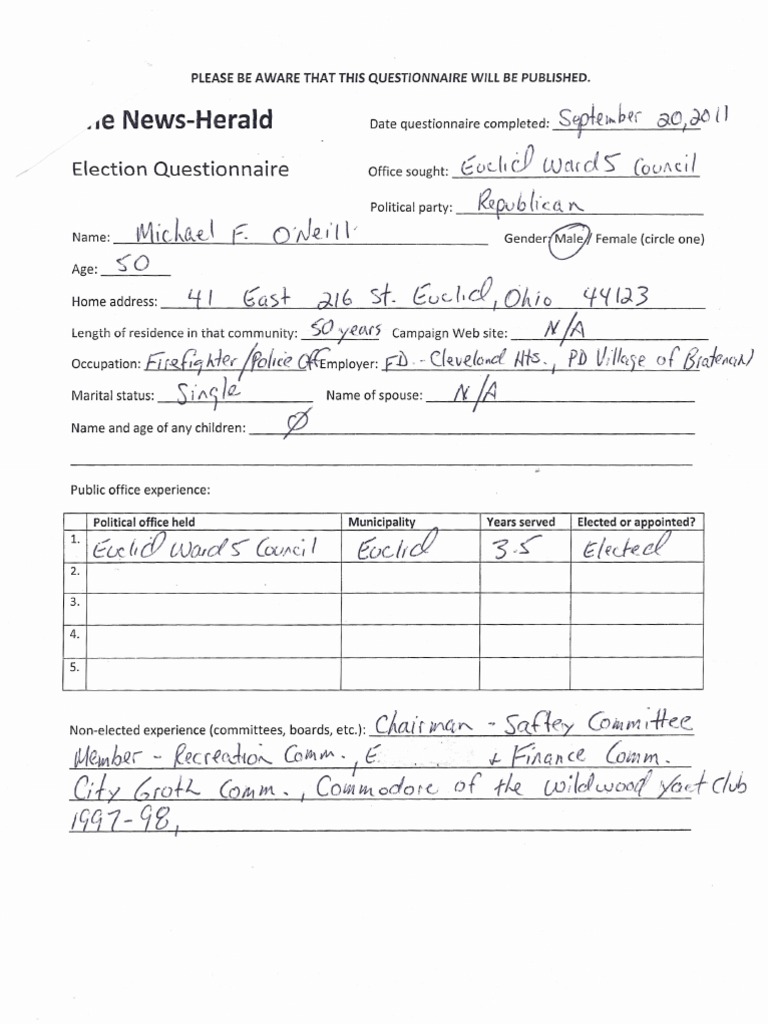 PLEASE BE AWARE THAT THIS QUESTIONNAIRE WILL BE PUBLISHED.
News-Herald
Date questionnaire completed: September 20, 2011
Election Questionnaire
Office sought: Euclid Ward 5 Council
Political party: Republican
Name: Michael F. O'Neill
Gender: Male / Female (circle one)
Age: 50
Home address: 41 East 216 St. Euclid, Ohio 44123
Length of residence in that community: 50 years Campaign Web site: N/A
Occupation: Firefighter/Police Off Employer: FD - Cleveland Hts., PD Village of Bratenahl
Marital status: Single Name of spouse: N/A
Name and age of any children: Ø
Public office experience:
Political office held Municipality Years served Elected or appointed?
1. Euclid Ward 5 Council Euclid 3.5 Elected
2.
3.
4.
5.
Non-elected experience (committees, boards, etc.): Chairman - Saftey Committee
Member - Recreation Comm., E + Finance Comm.
City Groth Comm., Commodore of the Wildwood Yact Club
1997-98,